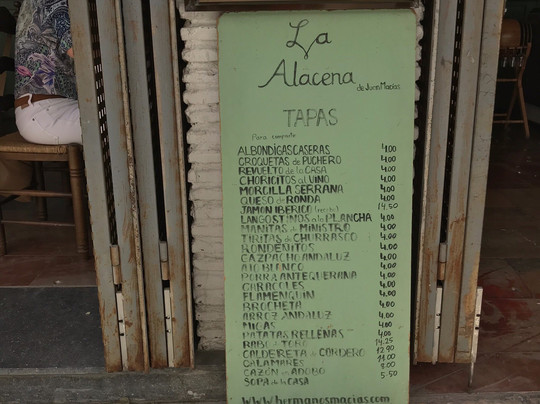 La
Alacena
de Juan Macías
TAPAS
Para compartir
ALBONDIGAS CASERAS 4.00
CROQUETAS de PUCHERO 4.00
REVUELTO de la CASA 4.00
CHORICITOS al VINO 4.00
MORCILLA SERRANA 4.00
QUESO de RONDA 4.00
JAMON IBERICO 14.50
LANGOSTINOS a la PLANCHA 4.00
MANITAS de MINISTRO 4.00
TIRITAS de CHURRASCO 4.00
RONDEÑITOS 4.00
GAZPACHO ANDALUZ 4.00
AJO BLANCO 4.00
PORRA ANTEQUERANA 4.00
CARACOLES 4.00
FLAMENQUIN 4.00
BROCHETA 4.00
ARROZ ANDALUZ 4.00
MIGAS 4.00
PATATAS RELLENAS 4.00
RABO de TORO 14.25
CALDERETA de CORDERO 12.90
CALAMARES 11.00
CAZON en ADOBO 8.00
SOPA de la CASA 5.50
www.hermanosmacias.com